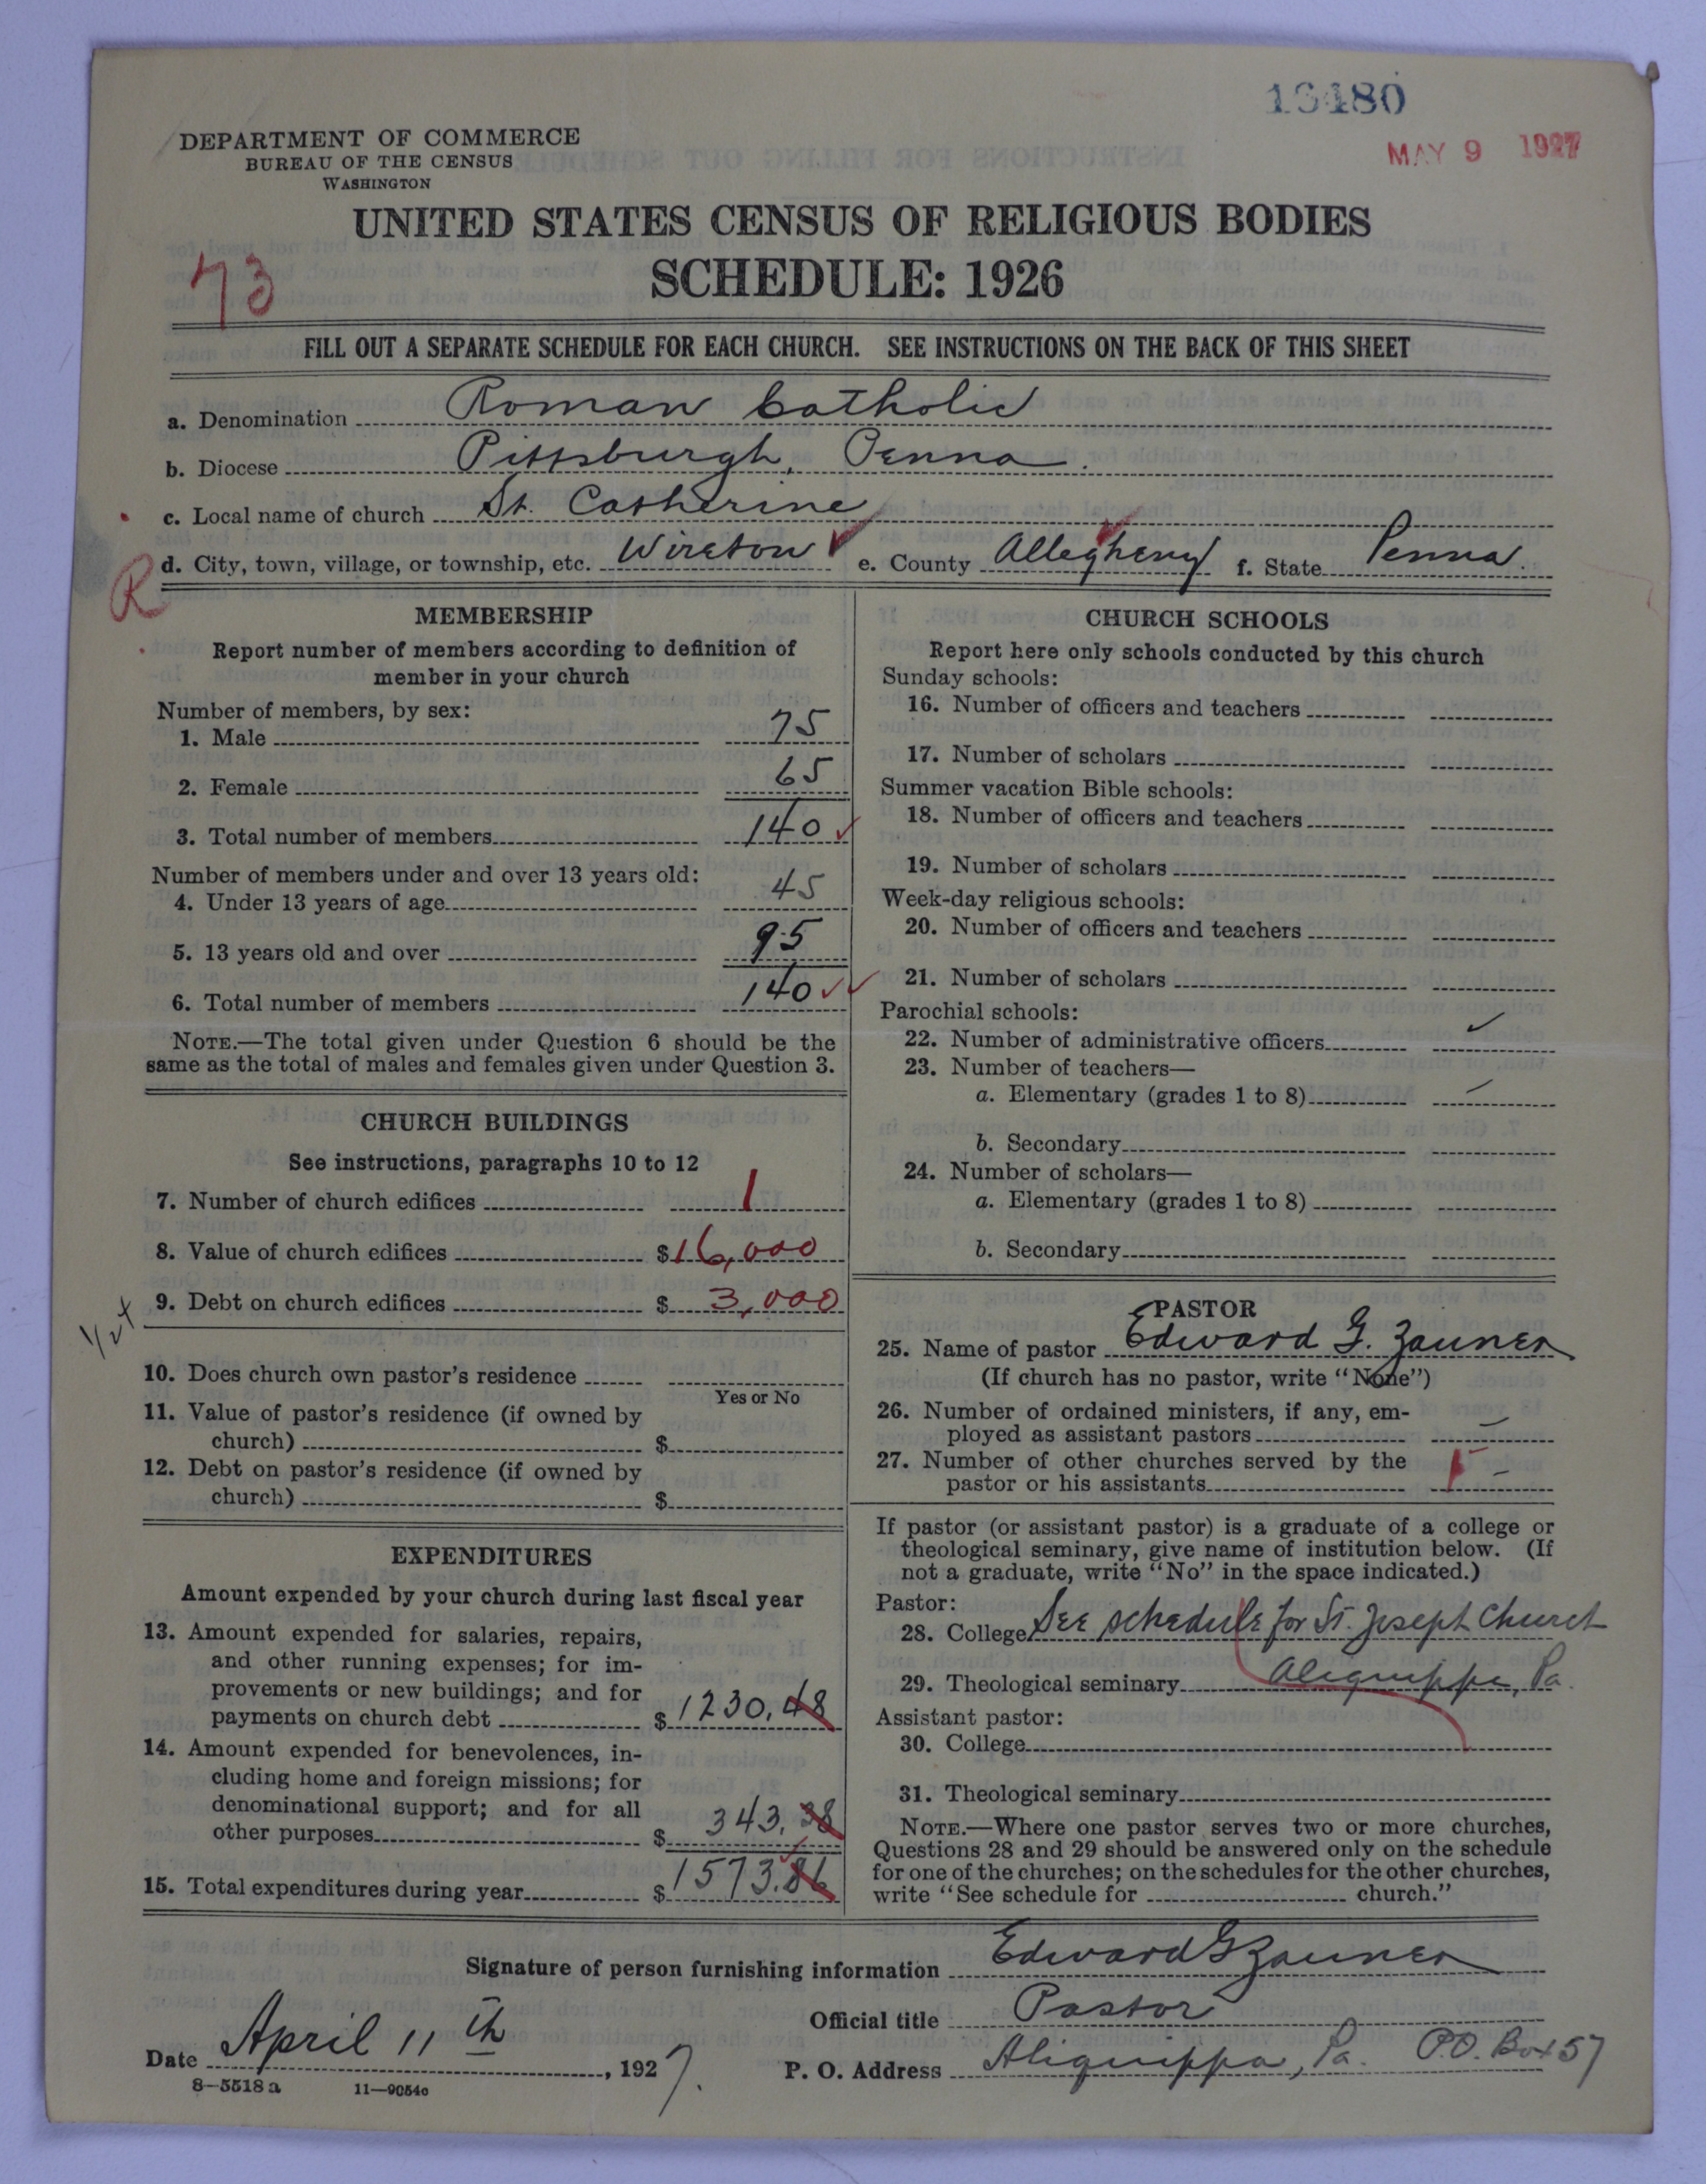 13480
MAY 9 1927
DEPARTMENT OF COMMERCE
BUREAU OF THE CENSUS
WASHINGTON
UNITED STATES CENSUS OF RELIGIOUS BODIES
SCHEDULE: 1926
73
FILL OUT A SEPARATE SCHEDULE FOR EACH CHURCH. SEE INSTRUCTIONS ON THE BACK OF THIS SHEET
a. Denomination Roman Catholic
b. Diocese Pittsburgh, Penna.
c. Local name of church St. Catherine
d. City, town, village, or township, etc. Wireton e. County Allegheny f. State Penna.
R
MEMBERSHIP
Report number of members according to definition of
member in your church
Number of members, by sex:
1. Male 75
2. Female 65
3. Total number of members 140 ✓
Number of members under and over 13 years old:
4. Under 13 years of age 45
5. 13 years old and over 95
6. Total number of members 140 ✓✓
NOTE.—The total given under Question 6 should be the
same as the total of males and females given under Question 3.
CHURCH BUILDINGS
See instructions, paragraphs 10 to 12
7. Number of church edifices 1
8. Value of church edifices $16,000
9. Debt on church edifices $ 3,000
10. Does church own pastor's residence
Yes or No
11. Value of pastor's residence (if owned by
church) $
12. Debt on pastor's residence (if owned by
church) $
EXPENDITURES
Amount expended by your church during last fiscal year
13. Amount expended for salaries, repairs,
and other running expenses; for im-
provements or new buildings; and for
payments on church debt $ 1230.48
14. Amount expended for benevolences, in-
cluding home and foreign missions; for
denominational support; and for all
other purposes $ 343.38
15. Total expenditures during year $ 1573.86
CHURCH SCHOOLS
Report here only schools conducted by this church
Sunday schools:
16. Number of officers and teachers
17. Number of scholars
Summer vacation Bible schools:
18. Number of officers and teachers
19. Number of scholars
Week-day religious schools:
20. Number of officers and teachers
21. Number of scholars
Parochial schools:
22. Number of administrative officers ✓
23. Number of teachers—
a. Elementary (grades 1 to 8) –
b. Secondary
24. Number of scholars—
a. Elementary (grades 1 to 8)
b. Secondary
PASTOR
25. Name of pastor Edward G. Zauner
(If church has no pastor, write "None")
26. Number of ordained ministers, if any, em-
ployed as assistant pastors –
27. Number of other churches served by the
pastor or his assistants 1 –
If pastor (or assistant pastor) is a graduate of a college or
theological seminary, give name of institution below. (If
not a graduate, write "No" in the space indicated.)
Pastor:
28. College See schedule for St. Joseph Church
29. Theological seminary Aliquippa, Pa.
Assistant pastor:
30. College
31. Theological seminary
NOTE.—Where one pastor serves two or more churches,
Questions 28 and 29 should be answered only on the schedule
for one of the churches; on the schedules for the other churches,
write "See schedule for church."
Signature of person furnishing information Edward G Zauner
Official title Pastor
Date April 11th, 1927. P. O. Address Aliquippa, Pa. P.O. Box 57
8—5518a 11—9054c